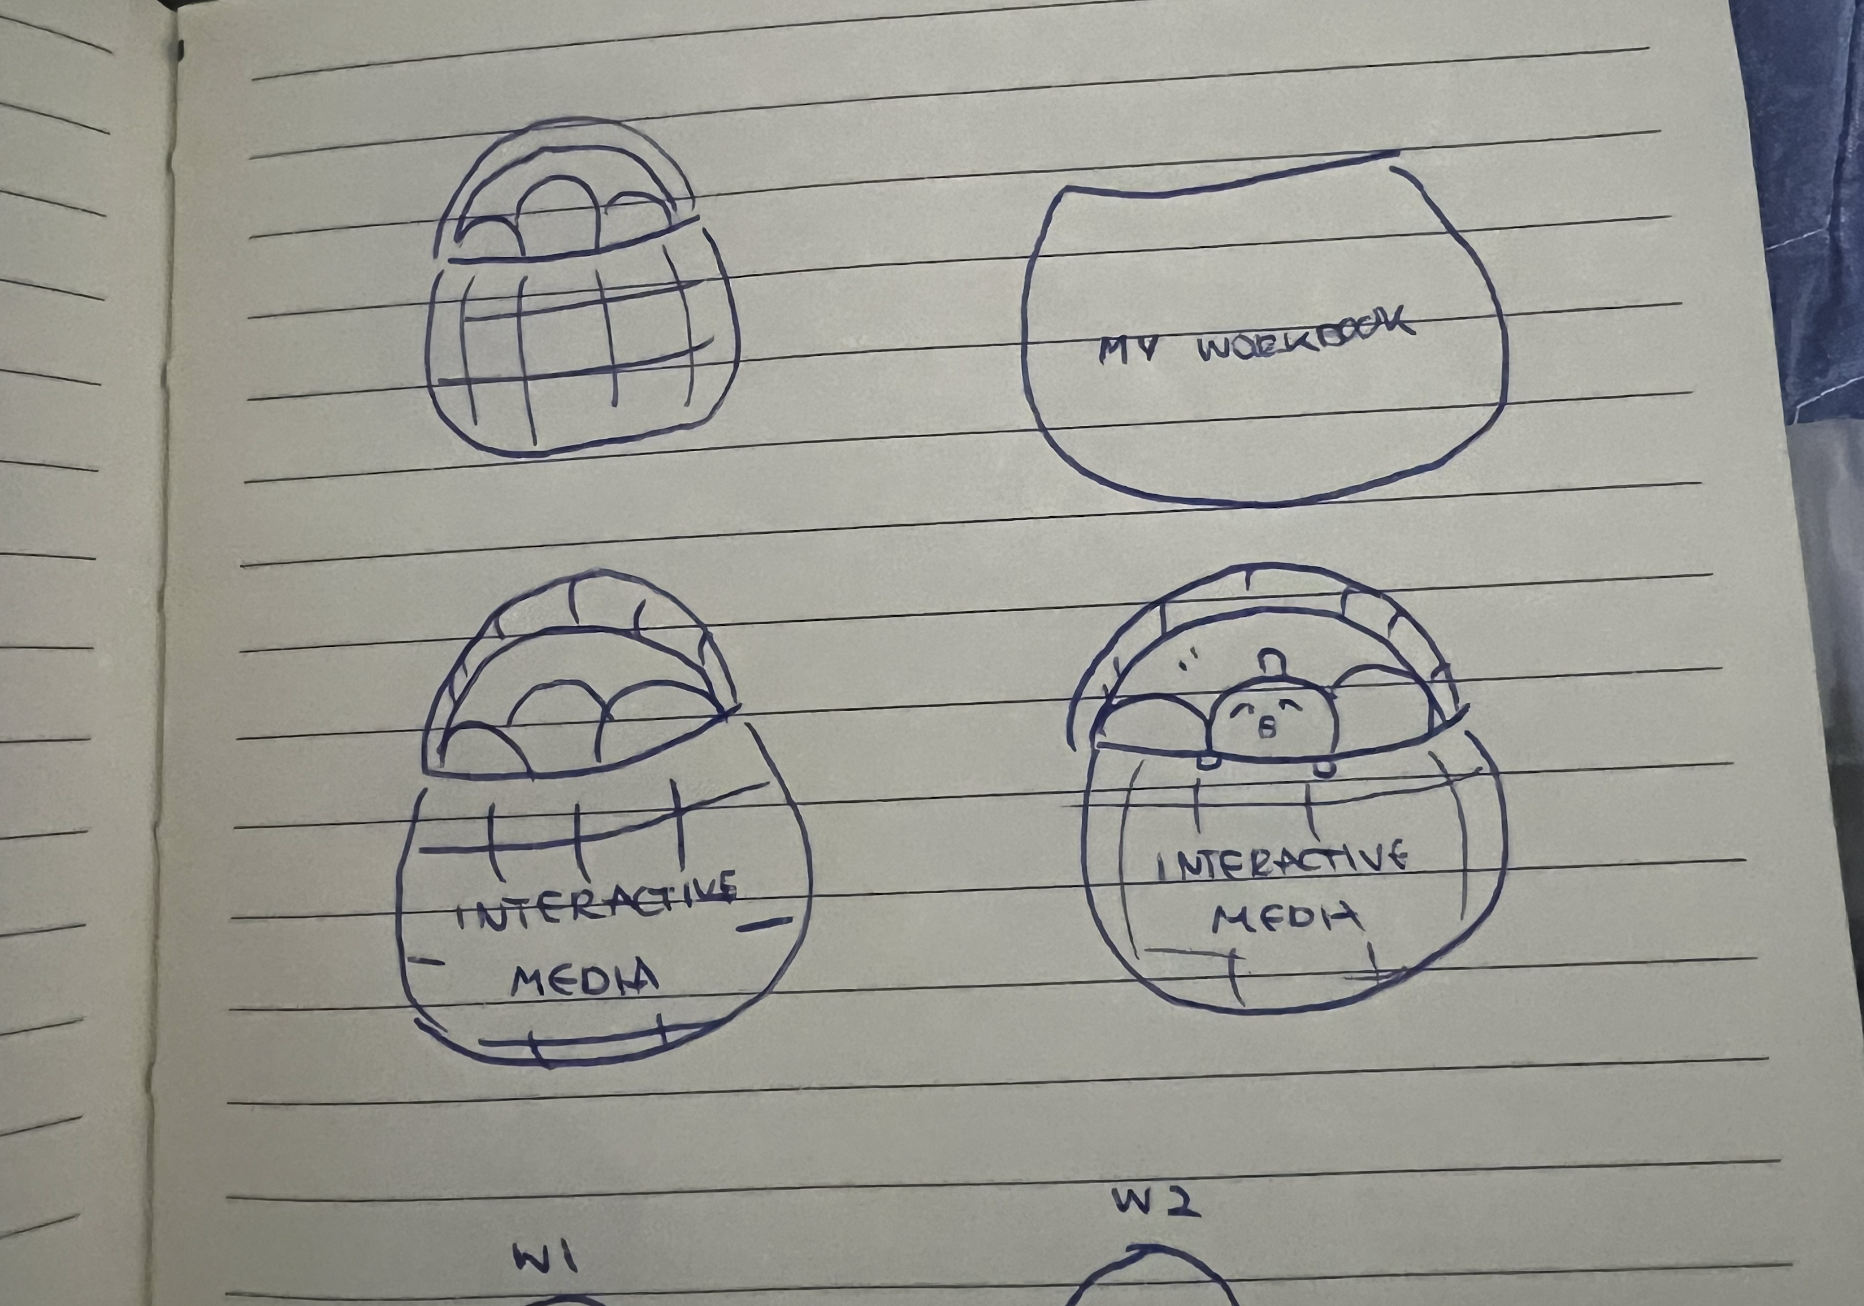 MY WORKBOOK
INTERACTIVE
MEDIA
INTERACTIVE
MEDIA
W1
W2